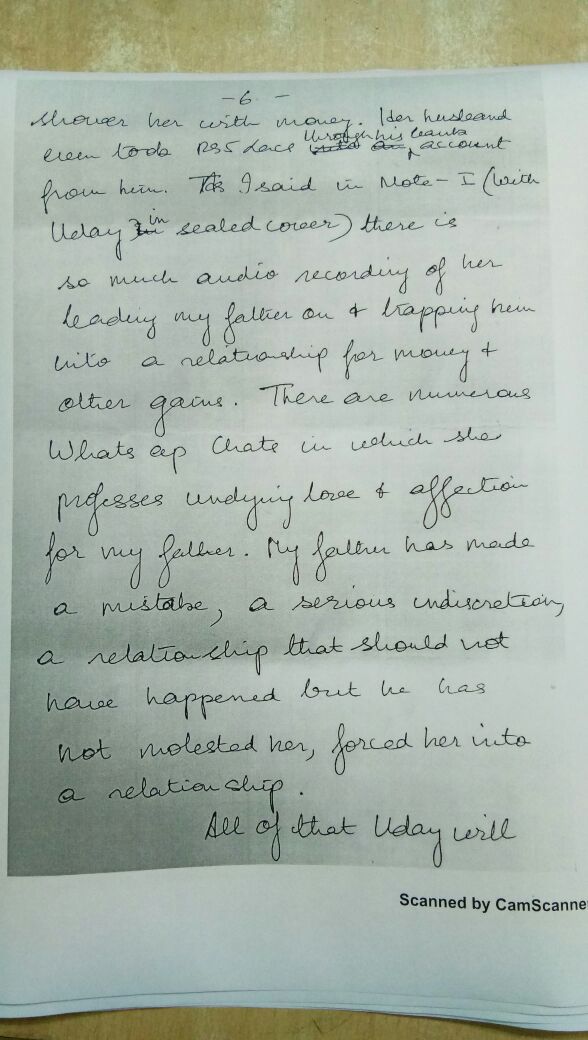 - 6 -
shower her with money. Her husband
even took RS5 Lacs through his bank account
from him. As I said in Note - I (with
Uday in sealed cover) there is
so much audio recording of her
leading my father on & trapping him
into a relationship for money &
other gains. There are numerous
Whats ap Chats in which she
professes undying love & affection
for my father. My father has made
a mistake, a serious indiscretion,
a relationship that should not
have happened but he has
not molested her, forced her into
a relationship.
All of that Uday will
Scanned by CamScanne